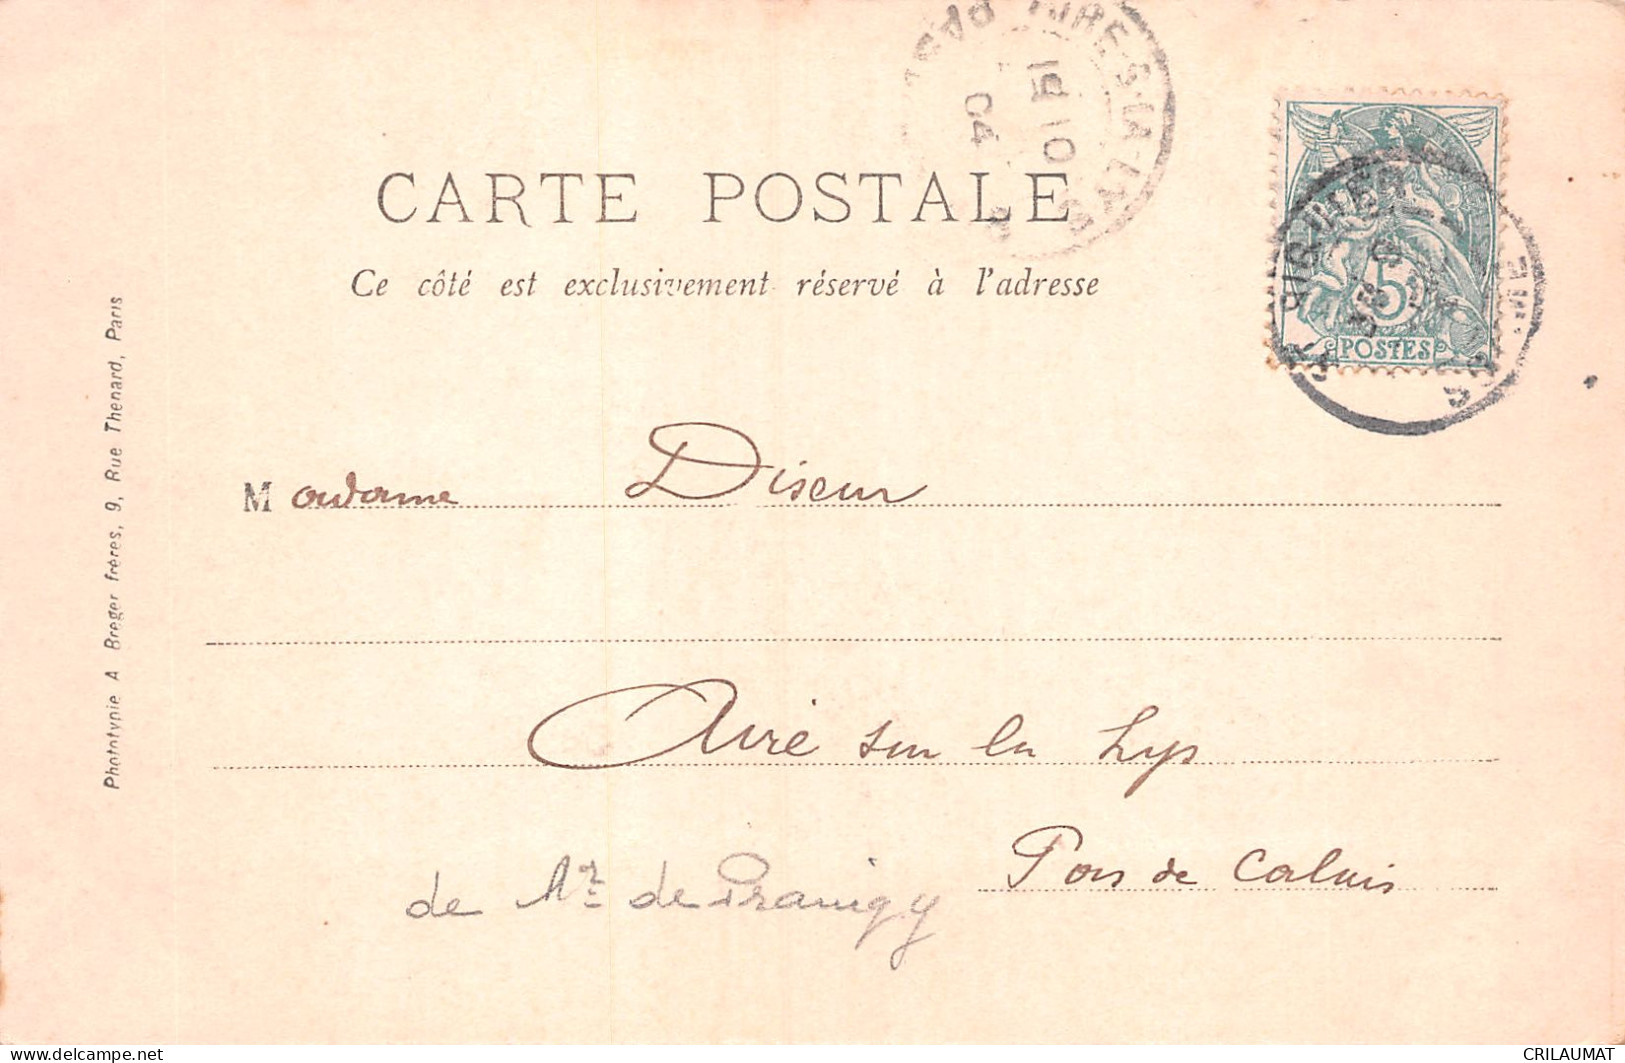 AIRE-S-LA-LYS
15 10
04
CARTE POSTALE
Ce côté est exclusivement réservé à l'adresse
5
POSTES
Madame Diseur
Aire sur la Lys
Pas de Calais
de Mr de
Phototypie A Breger frères, 9, Rue Thenard, Paris
delcampe.net
CRILAUMAT